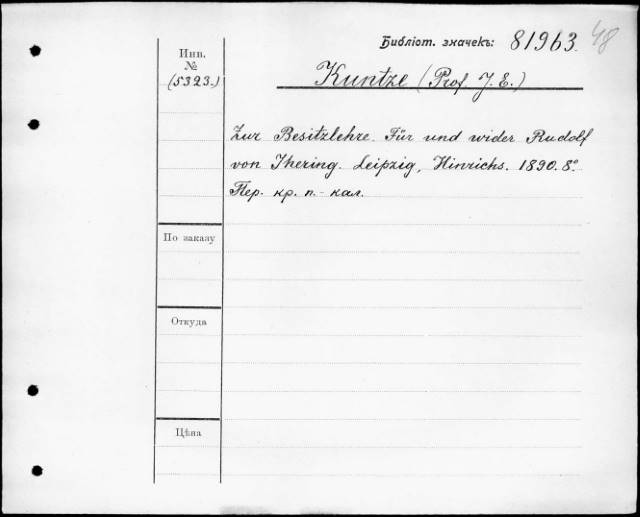 Библіот. значекъ: 81963. 48
Инв.
№
(5323.)
Kuntze (Prof. J. E.)
Zur Besitzlehre. Für und wider Rudolf
von Ihering. Leipzig, Hinrichs. 1890. 8º.
Пер. кр. п.- кал.
По заказу
Откуда
Цѣна